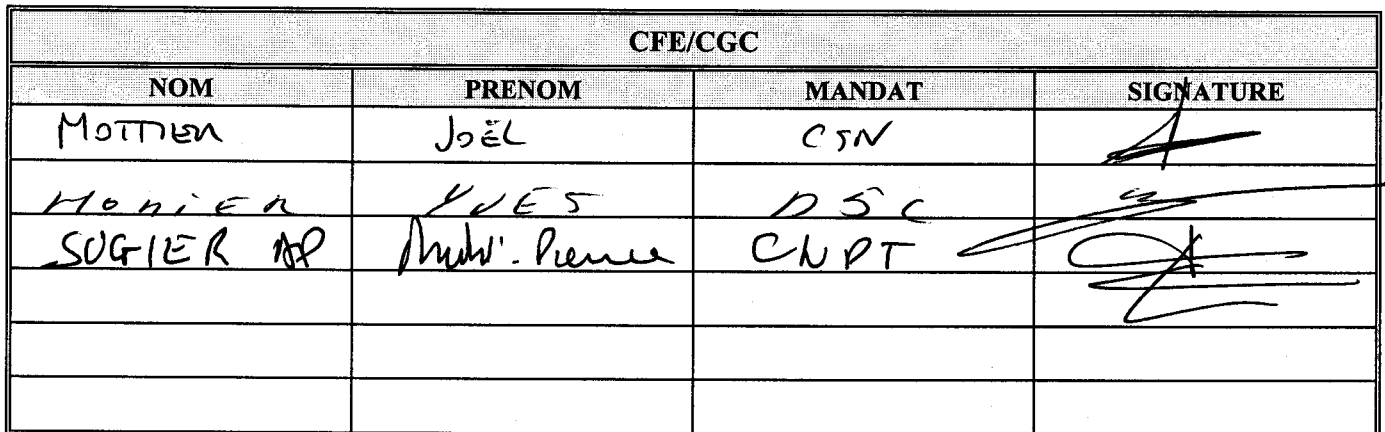 CFE/CGC
NOM PRENOM MANDAT SIGNATURE
MOTTIER JOËL CSN
MONIER YVES DSC
SUGIER AP André-Pierre CNPT